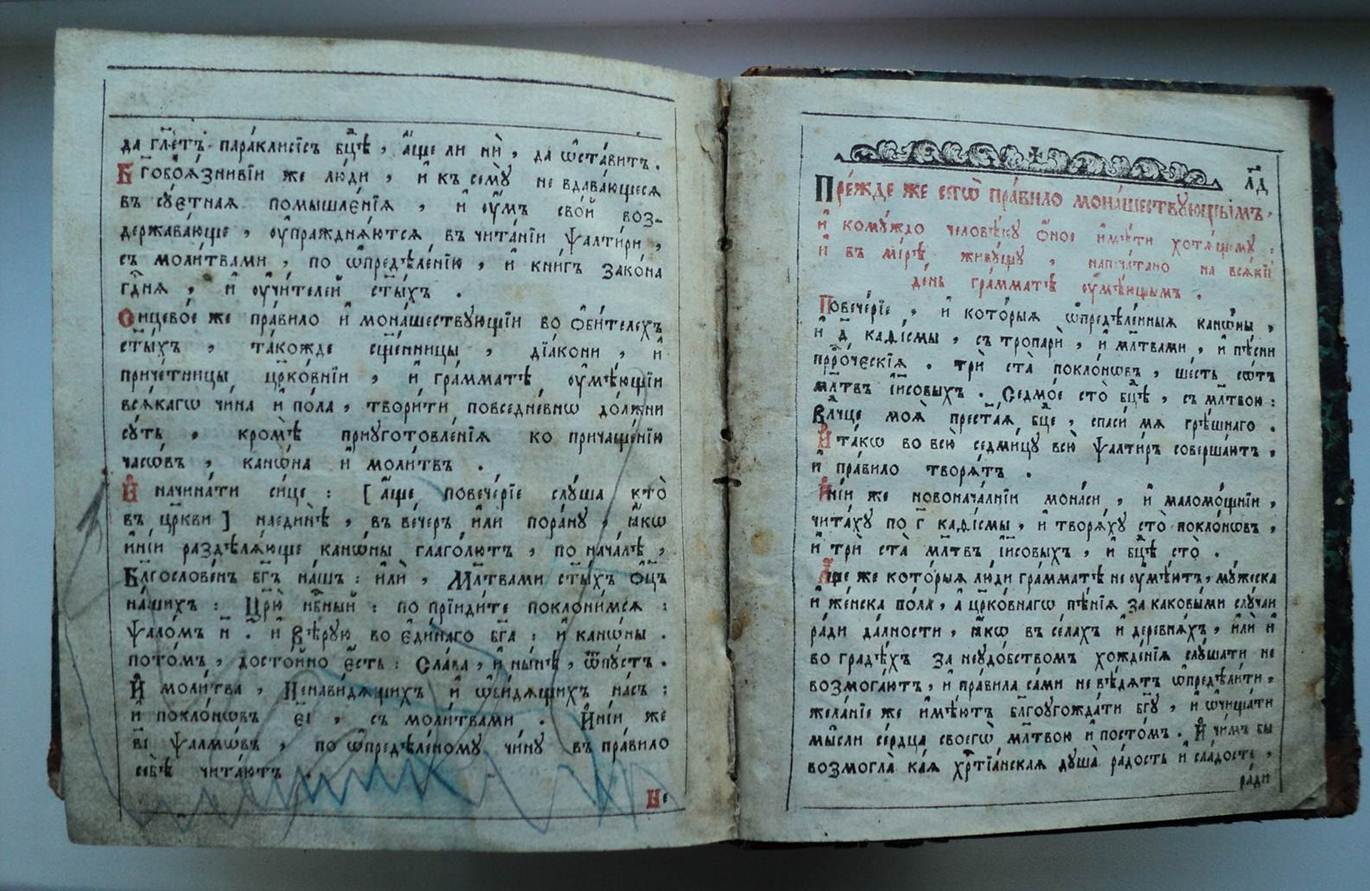 да гл҃етъ параклисїсъ бц҃ѣ, а҆́ще ли нѝ, да ѡ҆ста́витъ.
Бг҃обоѧ́знивїи же лю́ди, и҆ къ семꙋ̀ не вдава́ющеся
въ сꙋ́етная помышле́нїѧ, и҆ ᲂу҆́мъ сво́й воз-
держава́юще, ᲂу҆пражднѧ́ютсѧ въ чита́нїи ѱалти́ри,
съ моли́твами, по ѡ҆предѣле́нїю, и҆ кни́гъ зако́на
гд҇нѧ, и҆ ᲂу҆чи́телей ст҃ы́хъ.
Ѻ҆нцево́е же пра́вило и҆ мона́шествꙋющїи во ѻ҆би́телехъ
ст҃ы́хъ, та́кожде сщ҃е́нницы, дїа́кони, и҆
приче́тницы цр҃ко́внїи, и҆ гра́мматѣ ᲂу҆мѣ́ющїи
всѧ́кагѡ чи́на и҆ по́ла, твори́ти повседне́внѡ до́лжни
сꙋ́ть, кромѣ̀ приꙋготовле́нїѧ ко причаще́нїю
часѡ́въ, канѡ́на и҆ моли́твъ.
И҆ начина́ти си́це: [а҆́ще повече́рїе слꙋ́ша кто̀
въ цр҃кви] наединѣ̀, въ ве́черъ и҆лѝ пора́нꙋ, ꙗ҆́кѡ
и҆ні́и раздѣлѧ́юще канѡ́ны глаго́лютъ, по нача́лѣ,
Бл҃гослове́нъ бг҃ъ на́шъ: и҆лѝ, Мл҃твами ст҃ы́хъ ѻ҆ц҃ъ
на́шихъ: Цр҃ю̀ нб҇ный: по прїиди́те поклони́мсѧ:
ѱало́мъ н҃. и҆ Вѣ́рꙋю во є҆ди́наго бг҃а: и҆ канѡ́ны.
пото́мъ, досто́йно є҆́сть: Сла́ва, и҆ ны́нѣ, ѿпꙋ́стъ.
И҆ моли́тва, Ненави́дѧщихъ и҆ ѡ҆би́дѧщихъ на́съ:
и҆ покло́нѡвъ є҃і, съ моли́твами. И҆ні́и же
в҃і ѱалмѡ́въ, по ѡ҆предѣле́ному чи́нꙋ въ пра́вило
себѣ̀ чита́ютъ.
Не
л҃д
Пре́жде же є҆стѡ̀ пра́вило мона́шествꙋющымъ,
и҆ комꙋ́ждо человѣ́кꙋ ѻ҆́ное и҆мѣ́ти хотѧ́щемꙋ,
и҆ въ мі́рѣ живꙋ́щꙋ, напеча́тано на всѧ́кїй
де́нь гра́мматѣ ᲂу҆мѣ́ющымъ.
Повече́рїе, и҆ кото́рыѧ ѡ҆предѣле́нныѧ канѡ́ны,
и҆ д҃ каѳі́смы, съ тропарѝ, и҆ мл҃твами, и҆ пѣ́сни
прⷪ҇ро́ческїѧ. трѝ ста̀ покло́нѡвъ, ше́сть сѡ́тъ
мл҃твъ і҆и҃совыхъ. Седмо́е сто̀ бц҃ѣ, съ мл҃твою:
Влⷣчце моѧ̀ прест҃а́ѧ бц҃е, спасѝ мѧ̀ грѣ́шнаго.
И҆ та́кѡ во всю̀ седми́цꙋ всю̀ ѱалти́рь соверша́ютъ,
и҆ пра́вило творѧ́тъ.
И҆ні́и же новонача́лнїи мона́си, и҆ маломо́щнїи,
чита́хꙋ по г҃ каѳі́смы, и҆ творѧ́хꙋ сто̀ покло́нѡвъ,
и҆ трѝ ста̀ мл҃твъ і҆и҃совыхъ, и҆ бц҃ѣ сто̀.
А҆́ще же кото́рыѧ лю́ди гра́мматѣ не ᲂу҆мѣ́ютъ, мꙋ́жеска
и҆ же́нска по́ла, а҆ цр҃ко́внагѡ пѣ́нїѧ за каковы́ми слꙋ́чаи
ра́ди да́лности, ꙗ҆́кѡ въ се́лахъ и҆ дере́внѧхъ, и҆лѝ и҆
во гра́дѣхъ за неꙋдо́бствомъ хожде́нїѧ слꙋ́шати не
возмога́ютъ, и҆ пра́вила са́ми не вѣ́дѧтъ ѡ҆предѣли́ти,
жела́нїе же и҆мѣ́ютъ бл҃гоꙋгожда́ти бг҃ꙋ, и҆ ѡ҆чища́ти
мы́сли се́рдца своегѡ̀ мл҃твою и҆ посто́мъ. И҆ чи́мъ бы
возмогла̀ ка́ѧ хрⷭ҇тїа́нская дꙋша̀ ра́дость и҆ сла́дость,
ра́ди